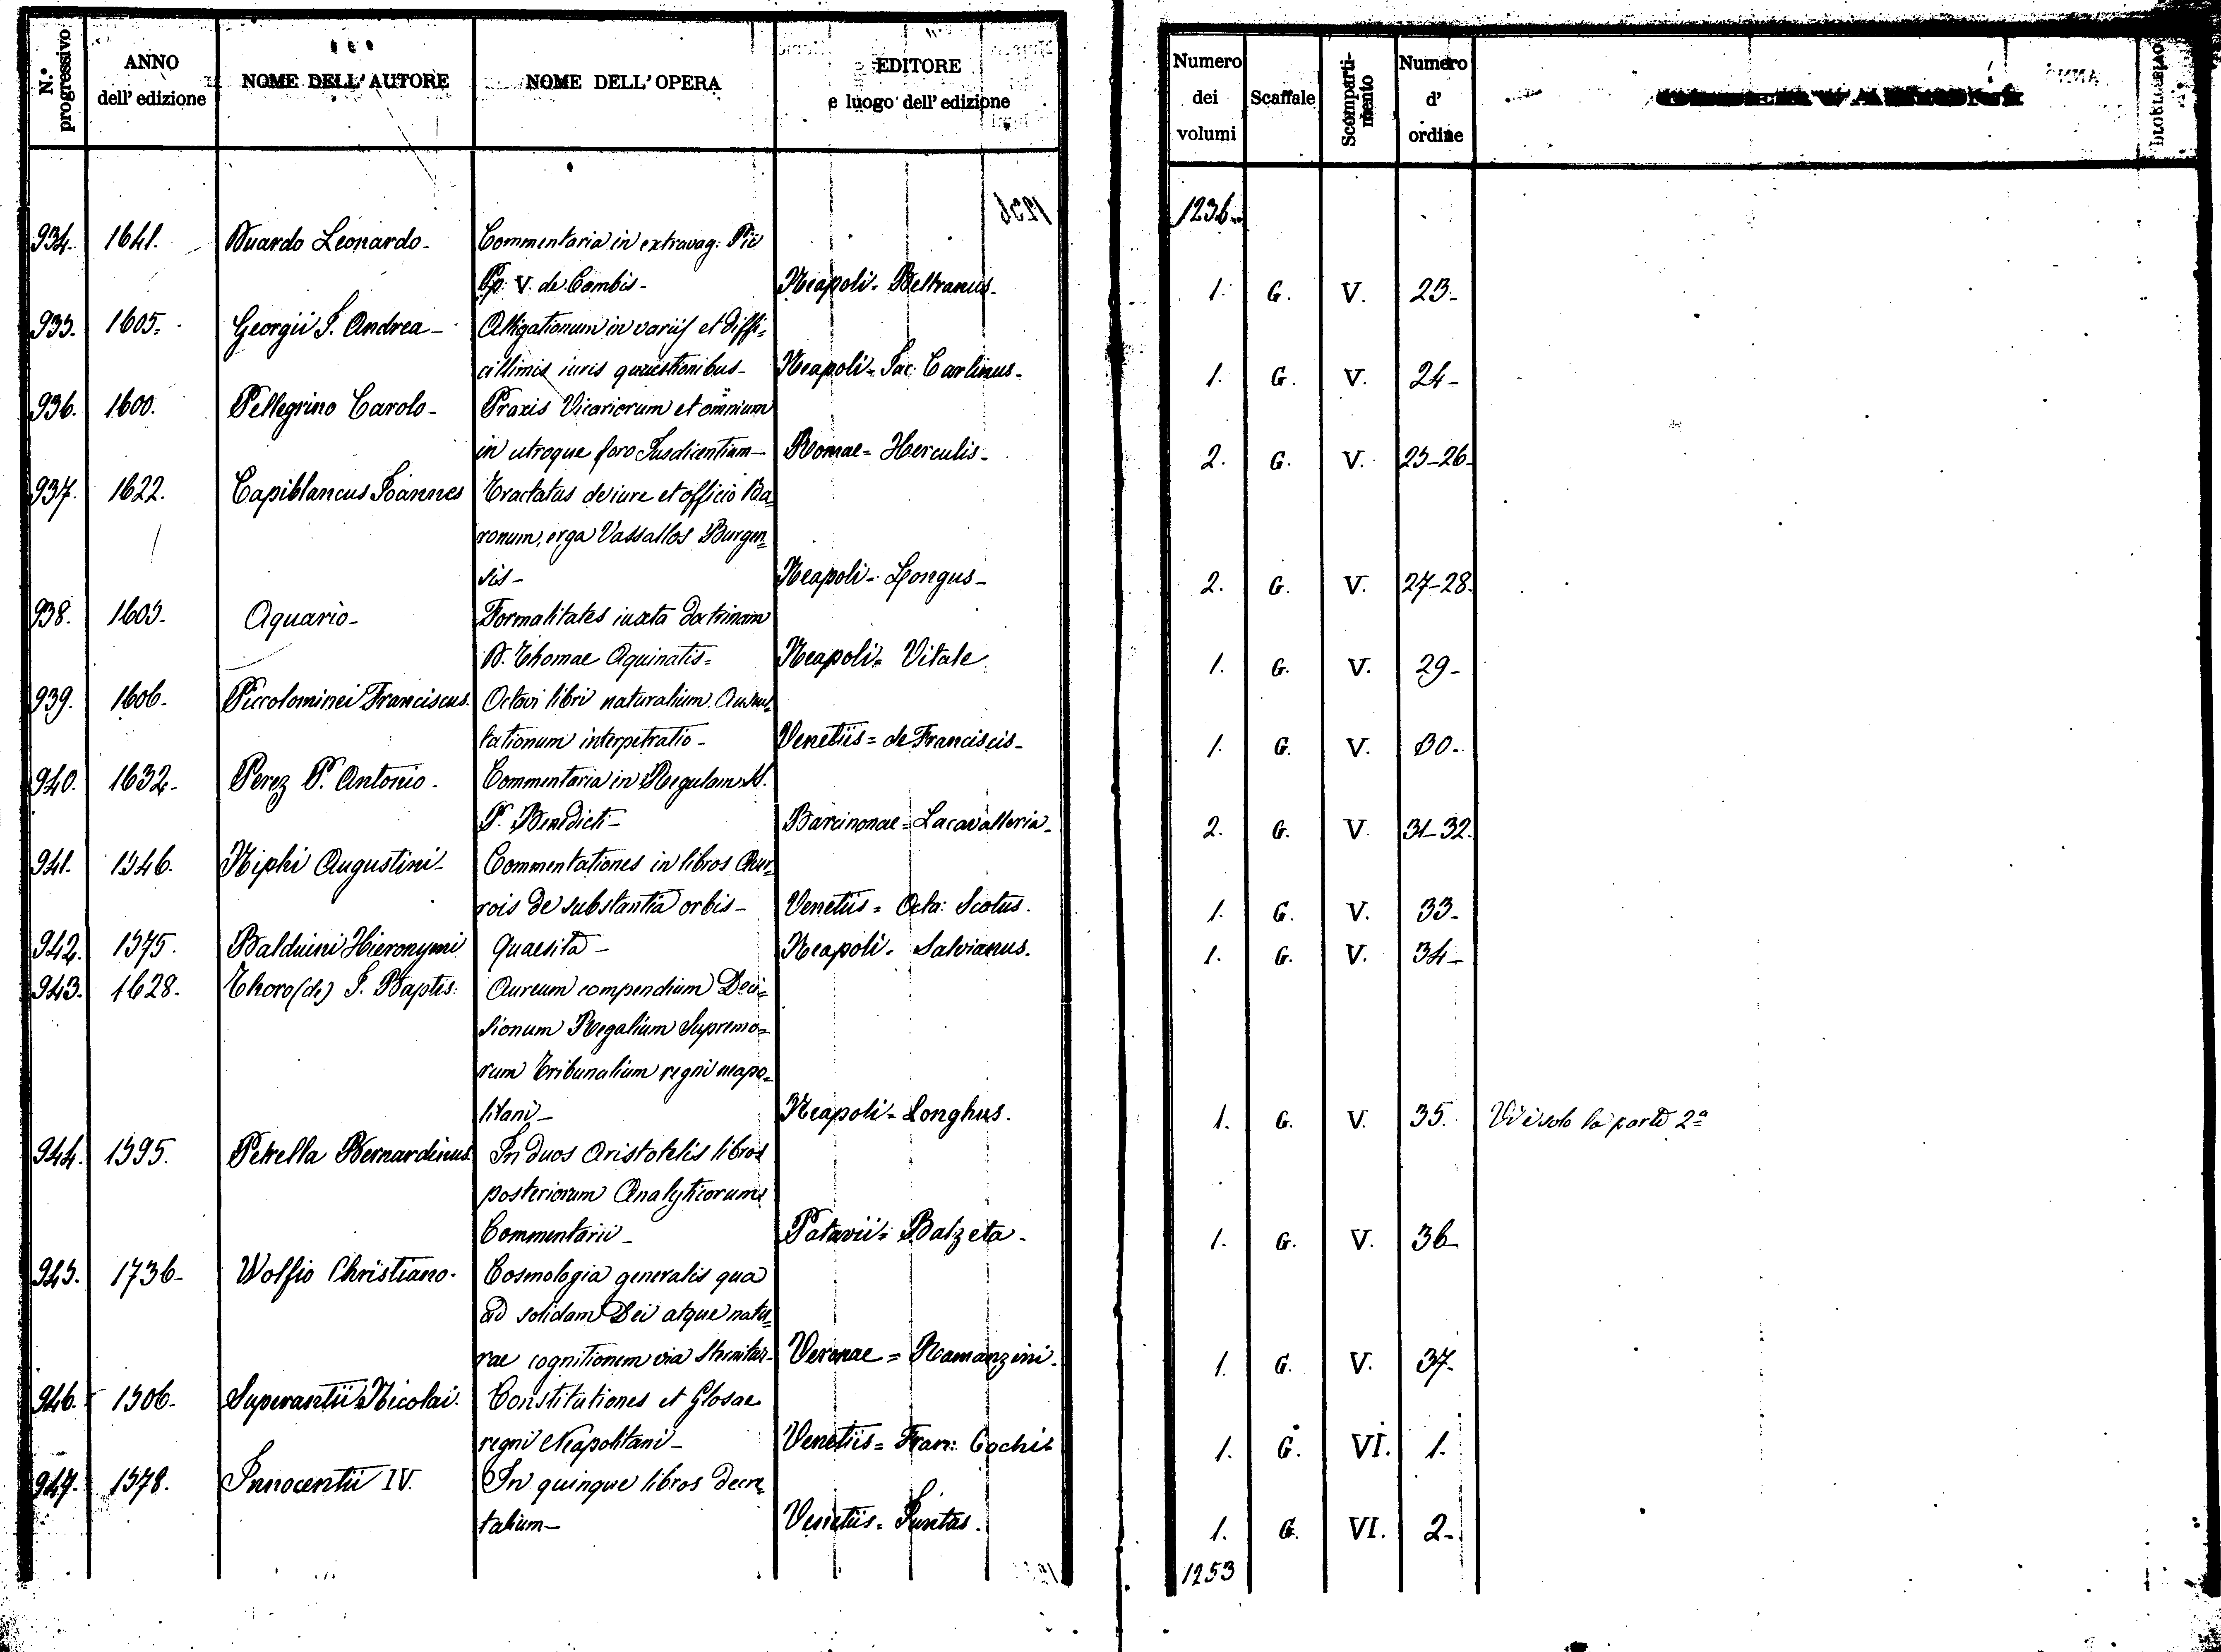 N.° progressivo | ANNO dell' edizione | NOME DELL' AUTORE | NOME DELL' OPERA | EDITORE e luogo dell' edizione | Numero dei volumi | Scaffale | Scomparti-mento | Numero d' ordine
1236
934. 1641. Duardo Leonardo- Commentaria in extravag: Pii
Pp: V. de Cambis- Neapoli- Beltranus- 1. G. V. 23-
935. 1605. Georgii I. Andrea- Alligationum in variis et diffi=
cillimis iuris quaestionibus- Neapoli- Iac: Carlinus- 1. G. V. 24-
936. 1600. Pellegrino Carolo- Praxis Vicariorum et omnium
in utroque foro Iusdicentium- Romae= Herculis- 2. G. V. 25-26-
937. 1622. Capiblancus Ioannes Tractatus de iure et officio Ba=
ronum, erga Vassallos Burgen=
sis- Neapoli- Longus- 2. G. V. 27-28.
938. 1605- Aquario- Formalitates iuxta doctrinam
D. Thomae Aquinatis= Neapoli= Vitale 1. G. V. 29-
939. 1606- Piccolominei Franciscus. Octavi libri naturalium Auscul=
tationum interpetratio- Venetiis= de Franciscis- 1. G. V. 30-
940. 1632- Perez P. Antonio. Commentaria in Regulam S.
P. Benedicti- Barcinonae= Lacavalleria- 2. G. V. 31-32.
941. 1546. Niphi Augustini- Commentationes in libros Aver=
rois de substantia orbis- Venetiis= Octa: Scotus. 1. G. V. 33-
942. 1575. Balduini Hieronymi Quaesita- Neapoli- Salvianus. 1. G. V. 34-
943. 1628. Thoro (de) I. Baptis: Aureum compendium Deci=
sionum Regalium Supremo=
rum Tribunalium regni neapo=
litani- Neapoli= Longhus. 1. G. V. 35. Vi è solo la parte 2ª
944. 1595. Petrella Bernardinus In duos Aristotelis libros
posteriorum Analyticorum
Commentarii- Patavii= Balzeta- 1. G. V. 36-
945. 1736- Wolfio Christiano. Cosmologia generalis qua
ad solidam Dei atque natu=
rae cognitionem via sternitur- Veronae= Ramanzini- 1. G. V. 37-
946. 1506- Superantii Nicolai. Constitutiones et Glosae
regni Neapolitani- Venetiis= Fran: Cochi- 1. G. VI. 1.
947. 1578. Innocentii IV. In quinque libros decre=
talium- Venetiis= Iuntas. 1. G. VI. 2-
1253